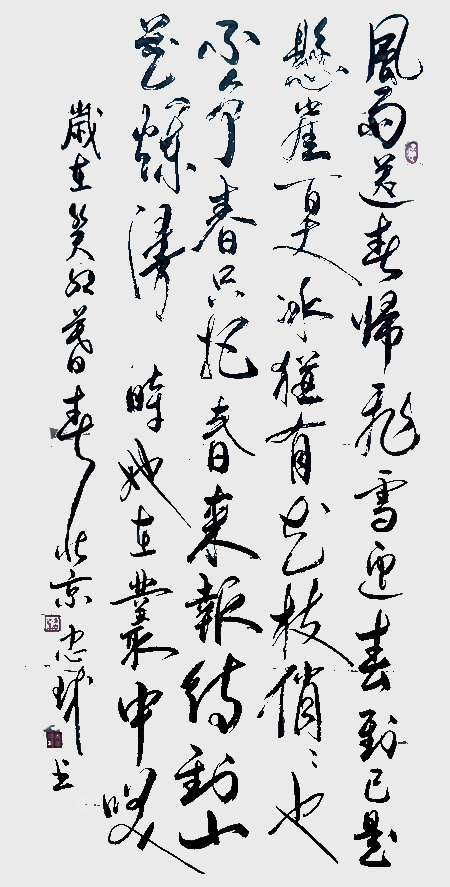 風雨送春歸飛雪迎春到已是
懸崖百丈冰猶有花枝俏〻也
不爭春只把春來報待到山
花爛漫時她在叢中笑
歲在癸卯暮春北京忠球书